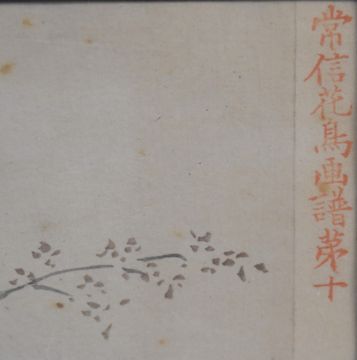 常信花鳥画譜苐十